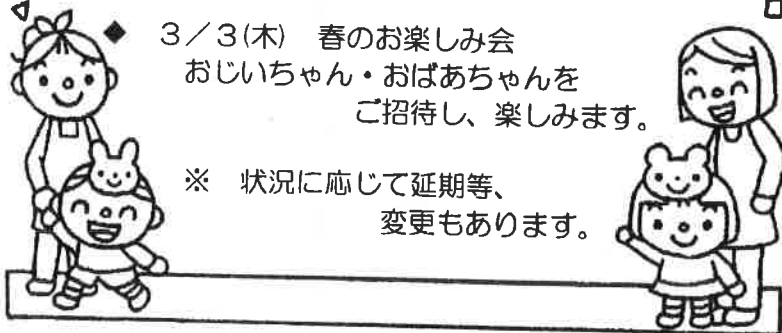 ◆ 3/3(木) 春のお楽しみ会
おじいちゃん・おばあちゃんを
ご招待し、楽しみます。
※ 状況に応じて延期等、
変更もあります。